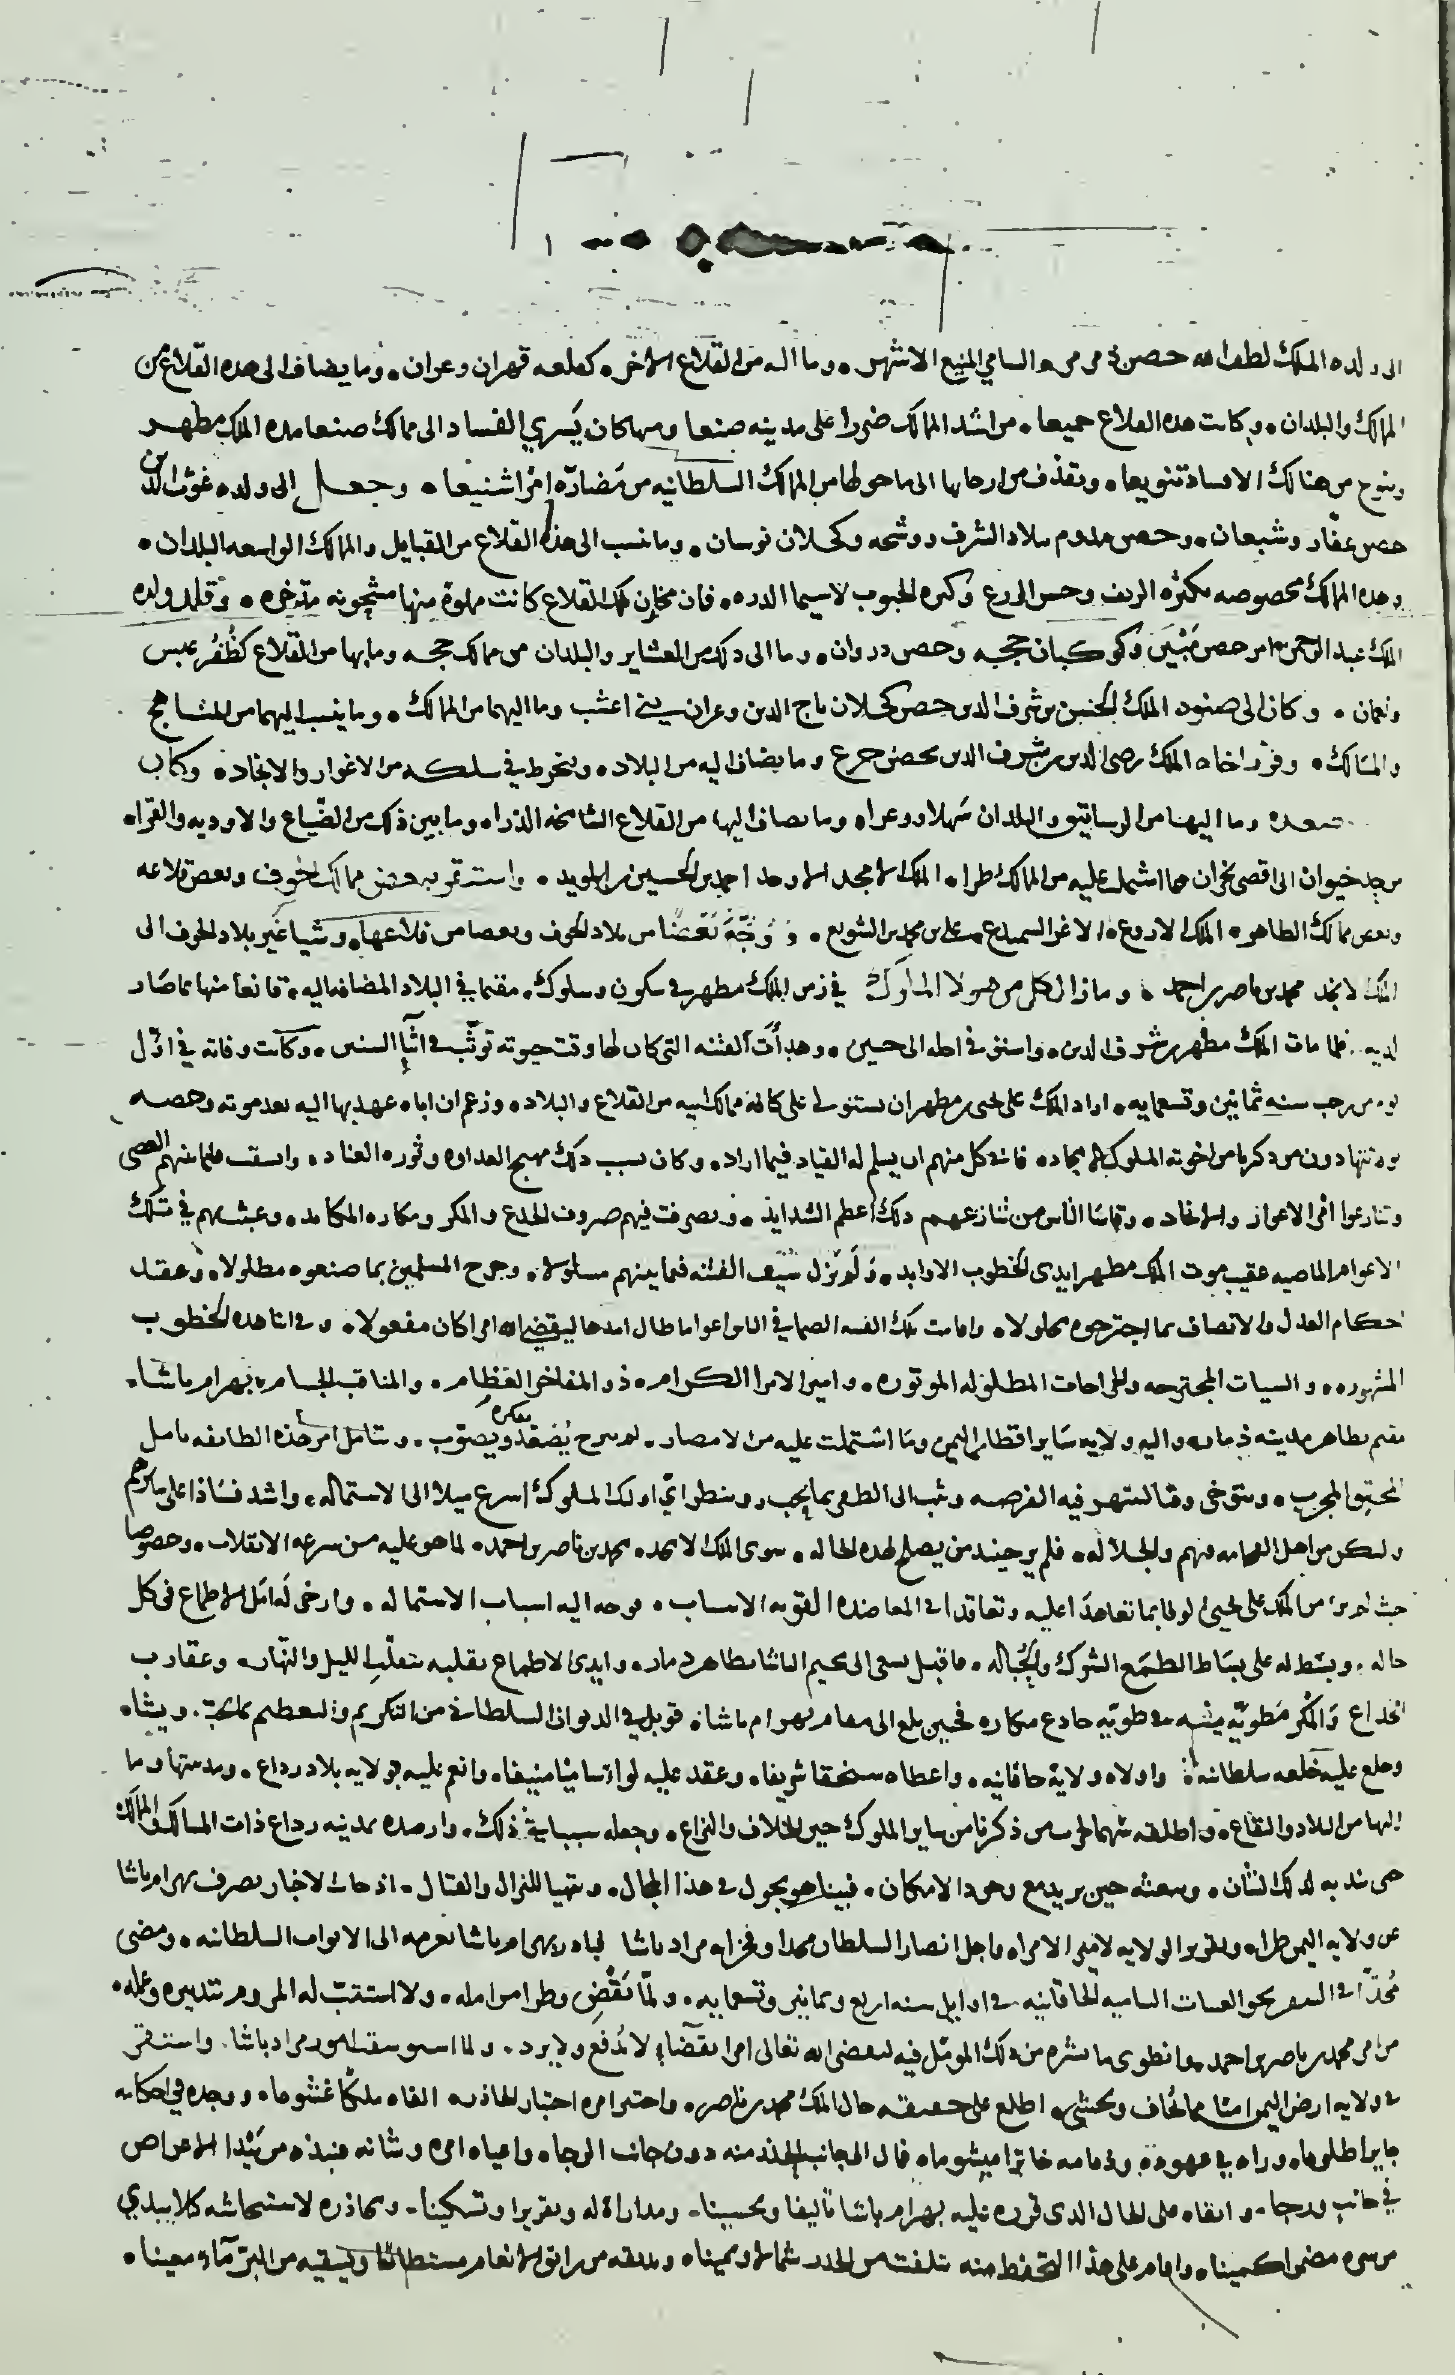 الى ولده الملك لطف الله حصن ذي مرمر السامي المنيع الاشهر وما اليه من القلاع الاخر كقلعه قهران وعران وما يضاف الى هذه القلاع من
الممالك والبلدان وكانت هذه القلاع جميعا من اشد الممالك ضررا على مدينه صنعا ومنها كان يسري الفساد الى ممالك صنعا مده الملك مطهر
من هنالك الافساد تنويعا وتقذف من ارجايها الى ما حولها من الممالك السلطانيه من مضاره امرا شنيعا وجعل الى ولده غوث الدين
حصن عفار وشبعان وحصن مدوم ببلاد الشرف وكحلان نوسان وما نسب الى هذه القلاع من القبايل والممالك الواسعه البلدان
وهذه الممالك مخصوصه بكثره الريف وحسن الزرع وكثره الحبوب لاسيما الذره فان مخازن تلك القلاع كانت مملوة منها مشحونه مدخره وقلد ولده
الملك عبد الرحمن امر حصن مبين وكوكبان حجه وحصن دروان وما الى ذلك من العشاير والبلدان من ممالك حجه وما بها من القلاع كظفر عبس
ونعمان وكان الى صنوه الملك الحسن بن شرف الدين حصن كحلان تاج الدين وعران بني اعشب وما اليهما من الممالك وما ينسب اليهما من المناهج
والمسالك وقرر اخاه الملك رضي الدين بن شرف الدين بحصن وما يضاف اليه من البلاد وانخرط في سلكه من الاغوار والانجاد وكان
صعده وما اليها من الرساتيق والبلدان سهلا ووعرا وما يضاف اليها من القلاع الشامخه الذرا وما بين ذلك من الضياع والاوديه والقرا
من حد خيوان الى اقصى نجران مما اشتمل عليه من الممالك طرا الملك الامجد الاوحد احمد بن الحسين بن المويد واستقر ببعض ممالك الجوف وبعض قلاعه
وبعض ممالك الظاهر الملك الاروع الاغر السميدع علي بن محمد بن الشويع وبعضا من بلاد الجوف وبعضا من قلاعها وشيا غير بلاد الجوف الى
الملك الانجد محمد بن ناصر بن احمد وما زال كل من هولا الملوك في زمن الملك مطهر في سكون وسلوك مقيما في البلاد المضافه اليه قانعا منها بما صار
لديه فلما مات الملك مطهر بن شرف الدين واستوفى اجله الى حين وهدأت الفتنه التي كان لها وقت حيوته توثب في اثنا السنين وكانت وفاته في اول
يوم من رجب سنه ثمانين وتسعمايه اراد الملك علي يحيى بن مطهر ان يستولي على كافه ممالك ابيه من القلاع والبلاد وزعم ان اباه عهد بها اليه بعد موته وخصه
دون من ذكرنا من اخوته الملوك الامجاد فابى كل منهم ان يسلم له القياد فيما اراد وكان بسبب ذلك مهيج العداوه وثوره العناد وانشقت فيما بينهم العصى
وتنازعوا في الاغوار والانجاد وقاسا الناس من تنازعهم ذلك اعظم الشدايد وتصرفت فيهم صروف الخدع والمكر ومكاره المكايد وعبثت بهم في تلك
الاعوام الماضيه عقيب موت الملك مطهر ايدي الخطوب الاوابد ولم يزل سيف الفتنه فيما بينهم مسلولا وجرح المسلمين بما صنعوه مطلولا وعقد
احكام العدل والانصاف بما اجترحوه محلولا واقامت تلك الفتنه الصما في الناس اعواما طال امدها ليقضي الله امرا كان مفعولا وفي اثنا هذه الخطوب
المشهوره والسيات المجترحه والجراحات المطلوله الموتوره وامير الامرا الكرام ذو المفاخر العظام والمناقب الجسام بهرام باشا
مقيم بظاهر مدينه ذمار واليه ولايه ساير اقطار اليمن وما اشتملت عليه من الامصار لم يبرح يصعد فكره ويصوب ويتامل امر هذه الطايفه تامل
المحقق المجرب ويتوخى وقتا ينتهز فيه الفرصه وينظر اي اوليك الملوك اسرع ميلا الى الاستماله واشد فسادا على
وليكن من اهل الفخامه منهم والجلاله فلم ير حينيذ من يصلح لهذه الحاله سوى الملك الامجد محمد بن ناصر بن احمد لما هو عليه من سرعه الانقلاب وخصوصا
حيث لم ير من الملك علي يحيى الوفا بما تعاهدا عليه وتعاقدا في المعاضده القويه الاسباب فوجه اليه اسباب الاستماله وارخى له امل الاطماع في كل
حاله وبسط له على بساط الطمع الشرك والحباله فاقبل يسعى الى مخيم الباشا بظاهر ذمار وايدي الاطماع تقلبه تقلب الليل والنهار وعقارب
الخداع والمكر مطويه منه في طويه خادع مكاره فحين بلغ الى مقام بهرام باشاه قوبل في الديوان السلطاني من التكريم والتعظيم بما يحب ويشاه
وخلع عليه خلعه سلطانيه واولاه ولاية خاقانيه واعطاه سنجقا شريفا وعقد عليه لوا ساميا منيفا وانعم عليه بولايه بلاد رداع ومدينتها وما
اليها من البلاد والبقاع واطلقه سهما من ذكرنا من ساير الملوك حين الخلاف والنزاع وجعله سببا في ذلك وارصده بمدينه رداع ذات المسالك والممالك
حتى ينتدبه لذلك الشان ويبعثه حين يريد مع وجود الامكان فبينا هو يجول في هذا المجال ويتهيا للنزال والقتال اذ جات الاخبار بصرف بهرام باشا
عن ولايه اليمن طرا وتقرير الولايه لامير الامرا واجل انصار السلطان مجدا وفخرا مراد باشا فبادر بهرام باشا بعزمه الى الابواب السلطانيه ومضى
مجدا في السفر نحو العتبات الساميه الخاقانيه في اوايل سنه اربع وثمانين وتسعمايه ولما يقض وطرا من امله ولا استتب له المروم بتدبيره وعمله
من امر محمد بن ناصر بن احمد وانطوى ما نشره من ذلك المومل فيه ليقضي الله تعالى امرا بقضاء لا يدفع ولا يرد ولما استوسقت الامور لمراد باشا واستقر
في ولايه ارض اليمن امنا مما يخاف ويخشى اطلع على حقيقه حال الملك محمد بن ناصر واختبر امره اختبار الحاذر الفاه ملكا غشوما ووجده في احكامه
جايرا ظلوما وراه في عهوده وذمامه خاترا ميشوما فمال الى جانب الحذر منه دون جانب الرجا واعياه امره وشانه فنبذه من مبدا الاعراض
في جانب ورجا وابقاه على الحال الذي قرره عليه بهرام باشا تاليفا وتحسينا ومداراة له وتقريرا وتسكينا ومحاذره لاستيحاشه كيلا يبدي
من سره مضمرا كمينا واقام على هذا التحفظ منه يتلفت من الحذر شمالا ويمينا ويذيقه من رايق الانعام مستطابا ويسقيه من البر مآء معينا